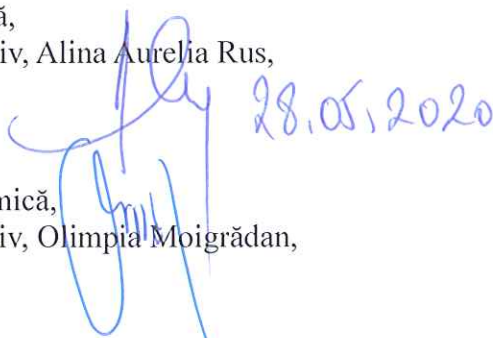 ă,
iv, Alina Aurelia Rus,
28.05.2020
mică,
iv, Olimpia Moigrădan,